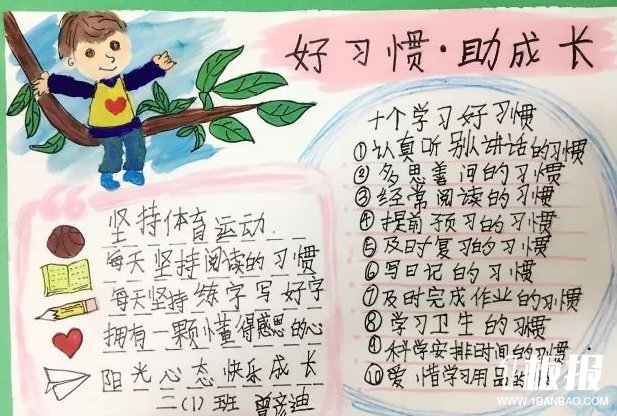 好习惯·助成长
十个学习好习惯
①认真听别讲话的习惯
②多思善问的习惯
③经常阅读的习惯
④提前预习的习惯
⑤及时复习的习惯
⑥写日记的习惯
⑦及时完成作业的习惯
⑧学习卫生的习惯
⑨科学安排时间的习惯
⑩爱惜学习用品的
坚持体育运动.
每天坚持阅读的习惯
每天坚持练字写好字
拥有一颗懂得感恩的心
阳光心态快乐成长
二(1)班
板报
WWW.1BANBAO.COM